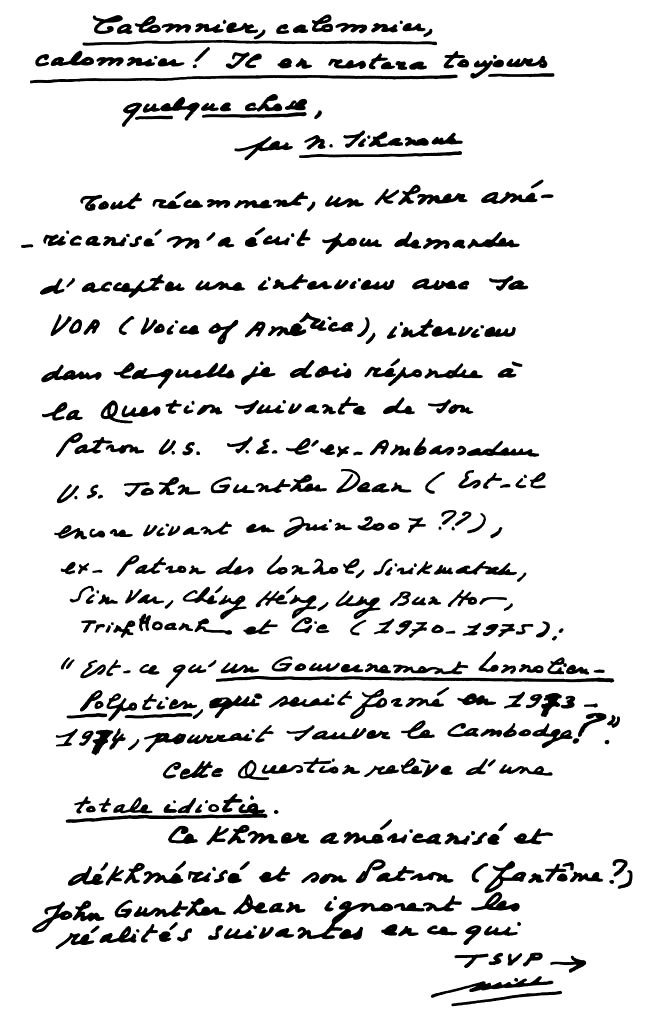 Calomnier, calomnier,
calomnier! Il en restera toujours
quelque chose,
par N. Sihanouk
Tout récemment, un Khmer amé-
-ricanisé m'a écrit pour demander
d'accepter une interview avec sa
VOA (Voice of América), interview
dans laquelle je dois répondre à
la Question suivante de son
Patron U.S. S.E. l'ex-Ambassadeur
U.S. John Gunther Dean (Est-il
encore vivant en Juin 2007 ??),
ex-Patron des Lonnol, Sirikmatak,
Sim Var, Chéng Héng, Ung Bun Hor,
Trinh Hoanh et Cie (1970-1975):
"Est-ce qu'un Gouvernement Lonnolien-
Polpotien, qui serait formé en 1973-
1974, pourrait sauver le Cambodge?".
Cette Question relève d'une
totale idiotie.
Ce Khmer américanisé et
dékhmérisé et son Patron (fantôme?)
John Gunther Dean ignorent les
réalités suivantes en ce qui
TSVP →